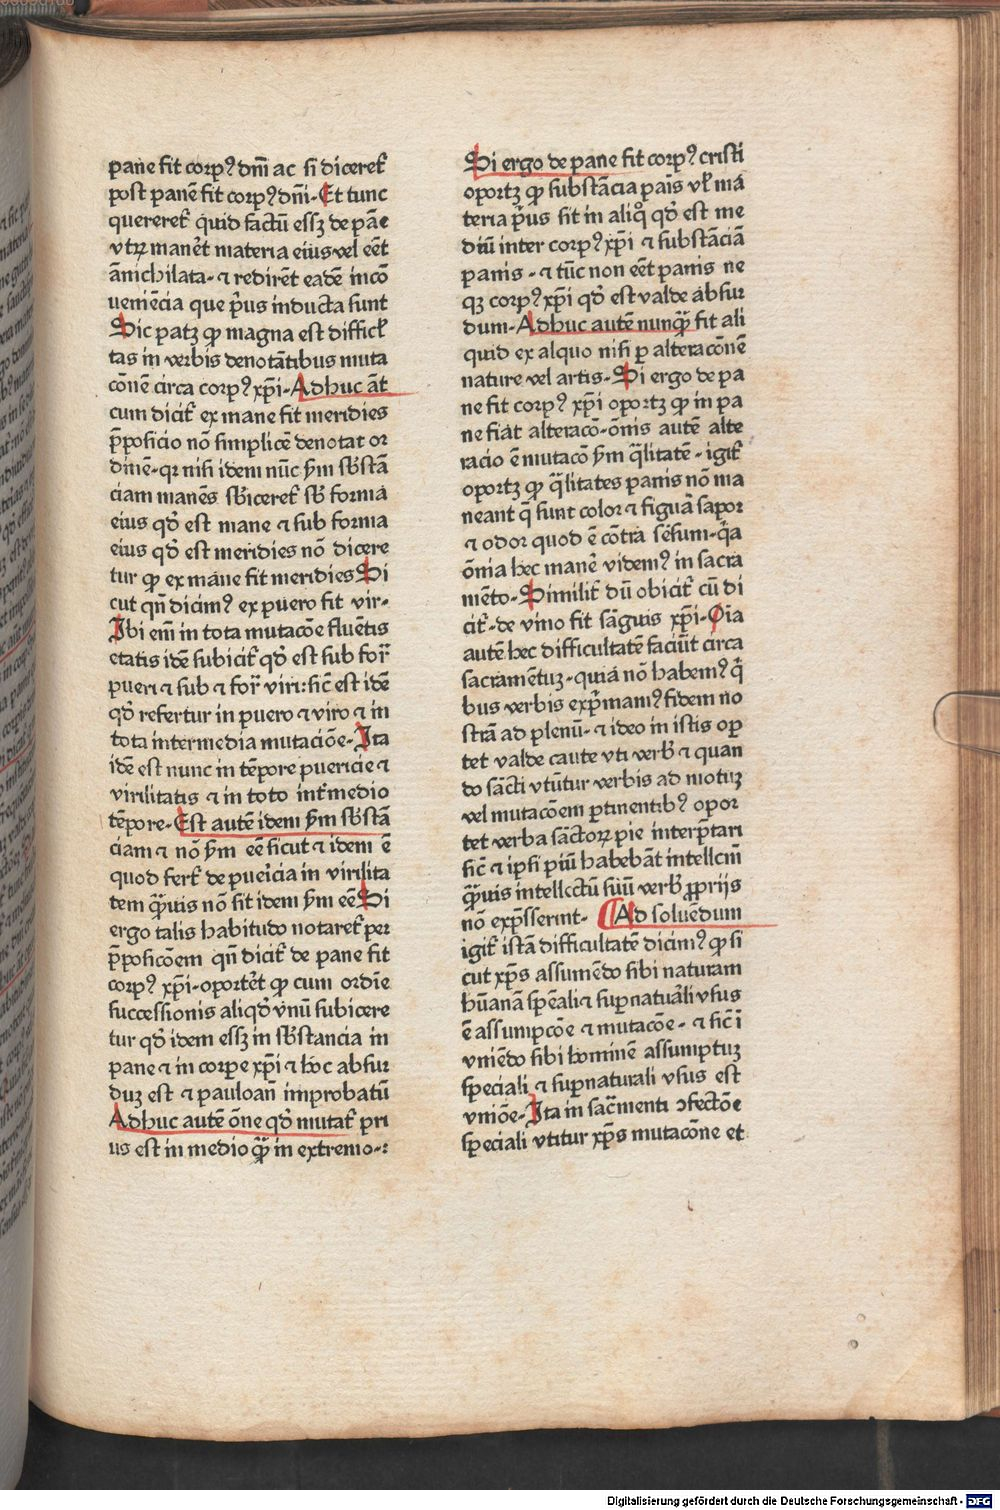 pane fit corpꝰ dm̄i ac si diceret᷑
post panē fit corpꝰ dm̄i· Et tunc
quereret᷑ quid factū essꝫ de pāe
vtrꝫ manēt materia eius vel eēt
ānichilata· ⁊ redirēt eadē incō
ueniēcia que p̄us inducta sunt
Sic patꝫ ꝙ magna est difficl̓
tas in verbis denotātibus muta
cōnē circa corpꝰ xp̄i· Adhuc āt
cum dicit᷑ ex mane fit meridies
p̄posicio nō simplicē denotat or
dinē· qꝛ nisi idem nūc s̄m sb̄stā
ciam manēs sb̄iceret᷑ sb̄ forma
eius qd̄ est mane ⁊ sub forma
eius qd̄ est meridies nō dicere
tur ꝙ ex māne fit meridies Si
cut qn̄ dicimꝰ ex puero fit vir·
Ibi em̄ in tota mutacōe fluētis
etatis idē subicit᷑ qd̄ est sub for᷑
pueri ⁊ sub ⁊ for᷑ viri: sic̄ est idē
qd̄ refertur in puero ⁊ viro ⁊ in
tota intermedia mutaciōe· Ita
idē est nunc in tēpore puericie ⁊
virilitatis ⁊ in toto int᷑medio
tēpore· Est autē idem s̄m sb̄stā
ciam ⁊ nō s̄m eē sicut ⁊ idem ē
quod fert᷑ de pueicia in virilita
tem qꝫuis nō sit idem s̄m eē Si
ergo talis habitudo notaret᷑ per
p̄posicōem qn̄ dicit᷑ de pane fit
corpꝰ xp̄i· oportēt ꝙ cum ordīe
successionis aliqd̄ vnū subicere
tur qd̄ idem essꝫ in sb̄stancia in
pane ⁊ in corpe xp̄i ⁊ hoc absur
duꝫ est ⁊ a pauloan̄ improbatū
Adhuc autē ōne qd̄ mutat᷑ pri
us est in medio qꝫ in extremo·:
Si ergo de pane fit corpꝰ cristi
oportꝫ ꝙ substācia pāis vl̓ ma
teria p̄us sit in aliqͦ qd̄ est me
diū inter corpꝰ xp̄i ⁊ substāciā
panis· ⁊ tūc non eēt panis ne
qꝫ corpꝰ xp̄i qd̄ est valde absur
dum· Adhuc autē nunqꝫ fit ali
quid ex alquo nisi p̱ alteracōnē
nature vel artis· Si ergo de pa
ne fit corpꝰ xp̄i oportꝫ ꝙ in pa
ne fiāt alteracō· ōnis autē alte
racio ē mutacō s̄m q̄litatē· igit᷑
oportꝫ ꝙ q̄litates panis nō ma
neant q̄ sunt color ⁊ figura sapor
⁊ odor quod ē cōtra sēsum· q̄a
ōnia hec manē videmꝰ in sacra
mēto· Similit᷑ dū obicit᷑ cū di
cit᷑· de vino fit sāguis xp̄i· Oīa
autē hec difficultatē faciūt circa
sacramētuꝫ· quia nō habemꝰ q̄
bus verbis exp̄mamꝰ fidem no
strā ad plenū· ⁊ ideo in istis opꝛ
tet valde caute vti verb̄ ⁊ quan
do sācti vtūtur verbis ad motuꝫ
vel mutacōem p̱tinentibꝰ opor
tet verba sāctorꝝ pie interp̄tari
sic̄ ⁊ ipsi piū habebāt intellcm̄
qꝫuis intellectū suū verb̄ ꝓprijs
nō exp̄sserint· Ad soluēdum
igit᷑ istā difficultatē dicimꝰ ꝙ si
cut xp̄s assumēdo sibi naturam
hūanā sp̄eali ⁊ sup̱natuᷓli vsus
ē assumpcōe ⁊ mutacōe· ⁊ sic̄ ī
vniēdo sibi hominē assumptuꝫ
speciali ⁊ sup̱naturali vsus est
vniōe· Ita in sac̄menti ꝯfectōe
speciali vtitur xp̄s mutacōne et
Digitalisierung gefördert durch die Deutsche Forschungsgemeinschaft - DFG